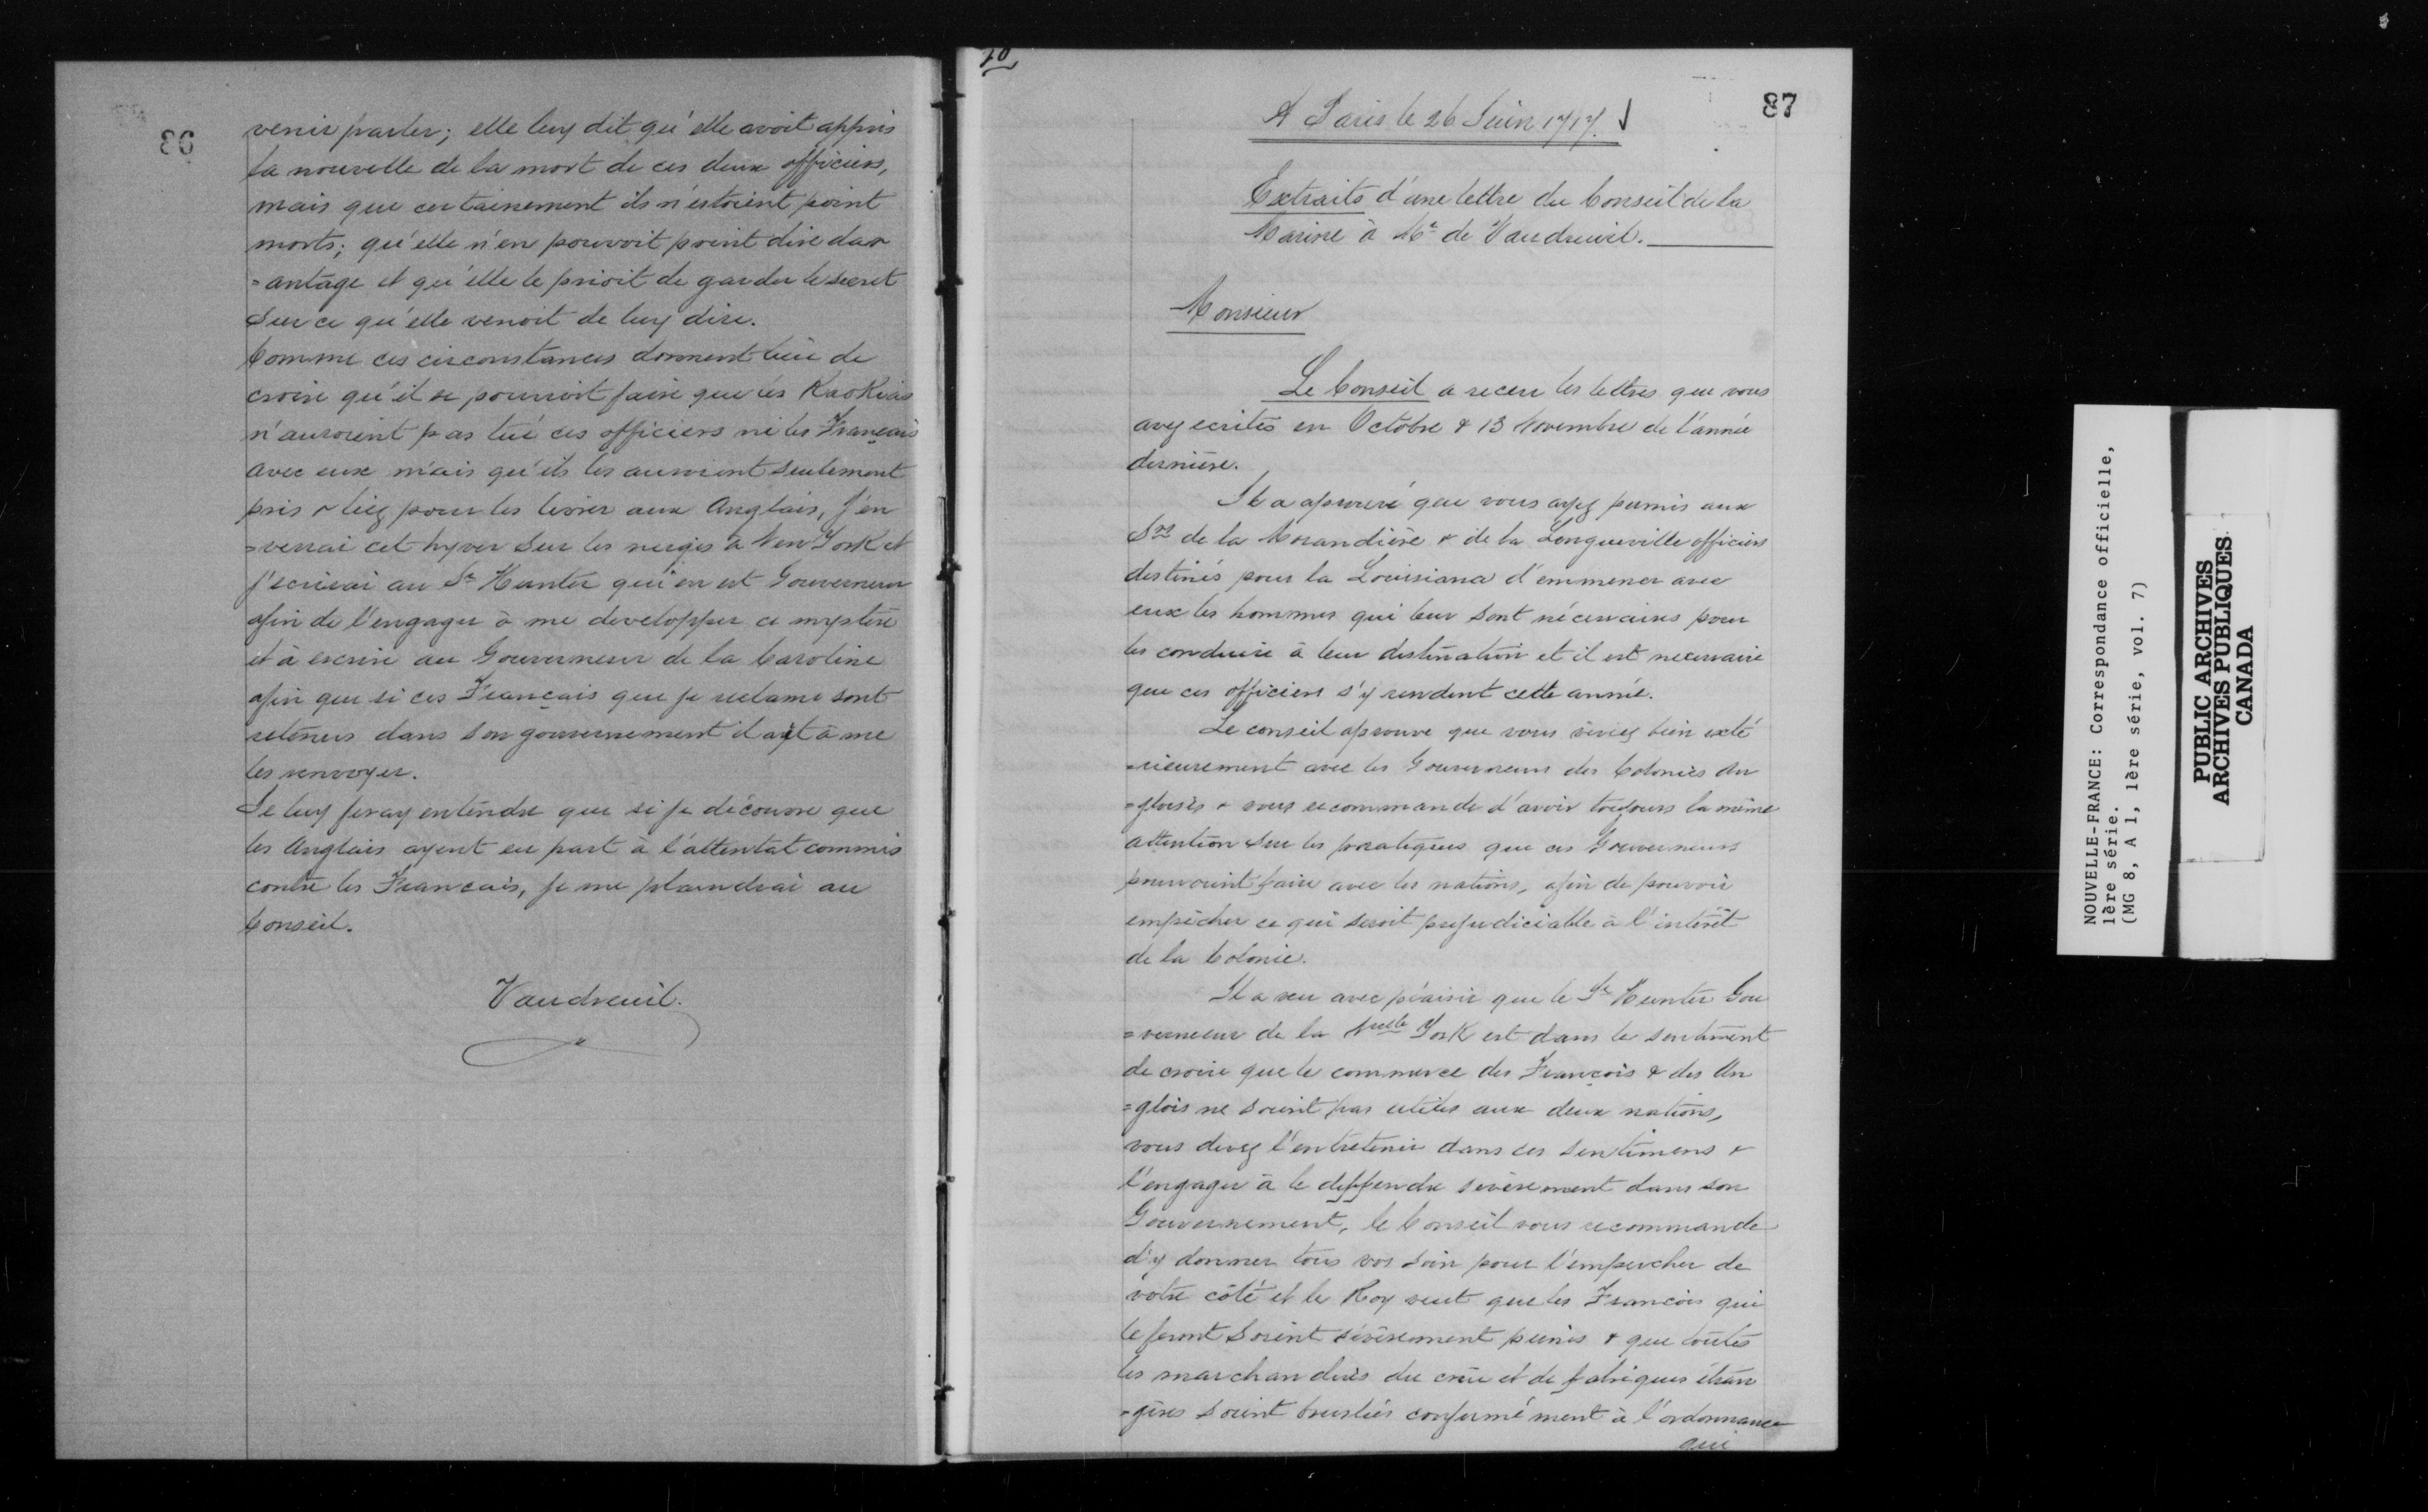 venir parler; elle luy dit qu'elle avoit appris
la nouvelle de la mort de ces deux officiers,
mais que certainement ils n'estoient point
morts; qu'elle n'en pouvoit point dire dav
=antage et qu'elle le prioit de garder le secret
sur ce qu'elle venoit de luy dire.
Comme ces circonstances donnent lieu de
croire qu'il se pourroit faire que les KaoKias
n'auroient pas tué ces officiers ni les Français
avec eux mais qu'ils les auroient seulement
pris & liez pour les livrer aux Anglais, j'en
=verrai cet hyver sur les neiges à New York et
j'ecrirai au Sr Hunter qui en est Gouverneur
afin de l'engager à me developper ce mystère
et à escrire au Gouverneur de la Caroline
afin que si ces Français que je reclame sont
retenus dans son gouvernement il ayt à me
les renvoyer.
Je luy feray entendre que si je découvre que
les Anglais ayent eu part à l'attentat commis
contre les Français, je me plaindrai au
Conseil.
Vaudreuil.
87
A Paris le 26 Juin 1717.
Extraits d'une lettre du Conseil de la
Marine à Mr de Vaudreuil.
Monsieur
Le Conseil a receu les lettres que vous
avez ecrites en Octobre & 13 Novembre de l'année
dernière.
Il a aprouvé que vous ayez permis aux
Srs de la Morandière & de la Longueville officiers
destinés pour la Louisiana d'emmener avec
eux les hommes qui leur sont nécessaires pour
les conduire à leur destination et il est necessaire
que ces officiers s'y rendent cette année.
Le conseil aprouve que vous viviez bien exté
=rieurement avec les Gouverneurs des Colonies An
=gloises & vous recommande d'avoir toujours la même
attention sur les pratiques que ces Gouverneurs
pourroient faire avec les nations, afin de pouvoir
empêcher ce qui seroit prejudiciable à l'intérêt
de la Colonie.
Il a veu avec plaisir que le Sr Hunter Gou
=verneur de la Nuelle York est dans le sentiment
de croire que le commerce des François & des An
=glois ne soient pas utiles aux deux nations,
vous devez l'entretenir dans ces sentimens &
l'engager à le deffendre sévèrement dans son
Gouvernement, le Conseil vous recommande
d'y donner tous vos soin pour l'empescher de
votre côté et le Roy veut que les François qui
le feront soient sévèrement punis & que toutes
les marchandises du crüe et de fabriques étran
=gères soient bruslées conformément à l'ordonnance
qui
NOUVELLE-FRANCE: Correspondance officielle,
1ère série.
(MG 8, A 1, 1ère série, vol. 7)
PUBLIC ARCHIVES
ARCHIVES PUBLIQUES
CANADA